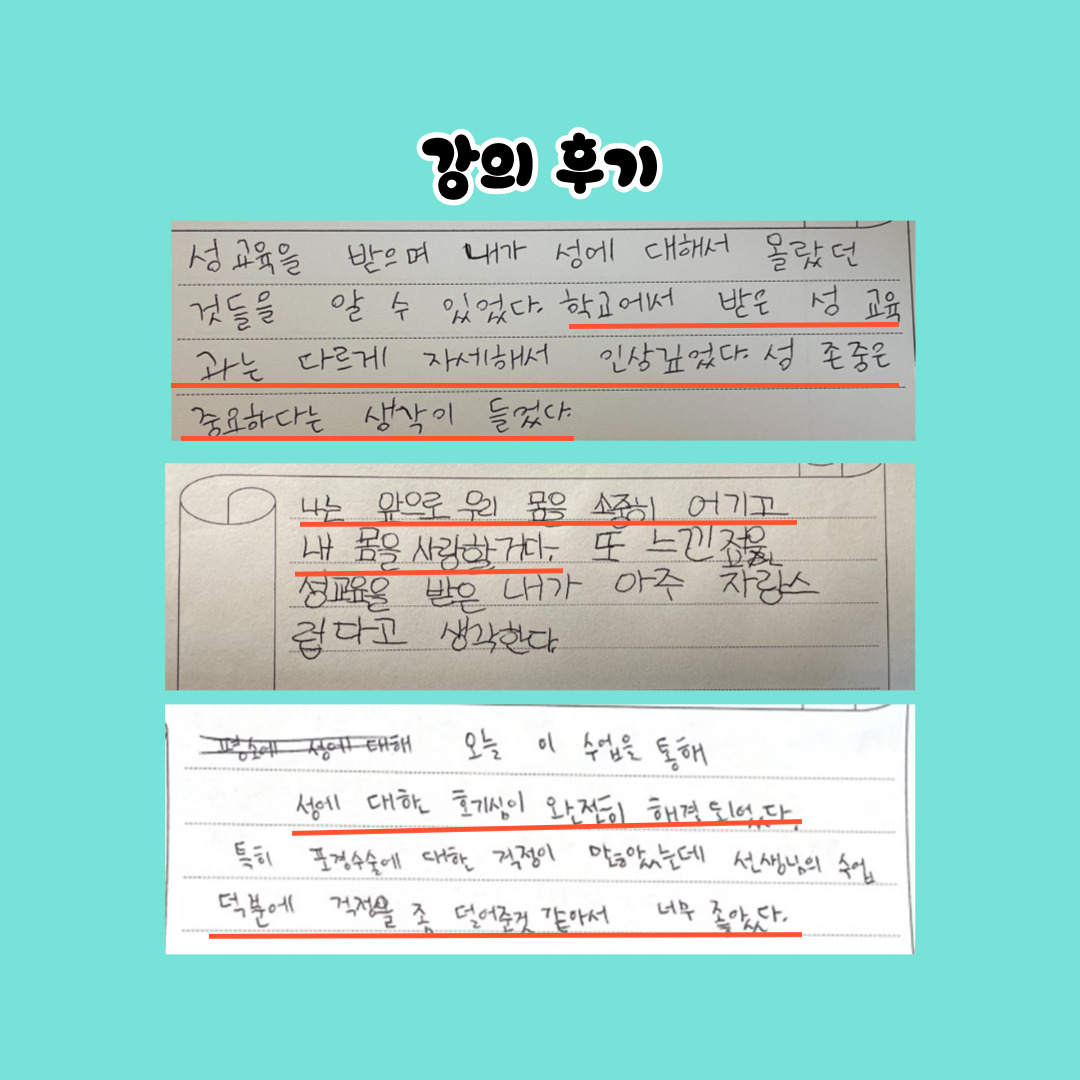 강의 후기
성교육을 받으며 내가 성에 대해서 몰랐던
것들을 알 수 있었다. 학교에서 받은 성 교육
과는 다르게 자세해서 인상깊었다. 성 존중은
중요하다는 생각이 들었다.
나는 앞으로 우리 몸을 소중히 여기고
내 몸을 사랑할거다. 또 느낀점은
성교육을 받은 내가 아주 자랑스
럽다고 생각한다.
평소에 성에 대해 오늘 이 수업을 통해
성에 대한 호기심이 완전히 해결되었다.
특히 포경수술에 대한 걱정이 많았었는데 선생님의 수업
덕분에 걱정을 좀 덜어준것 같아서 너무 좋았다.